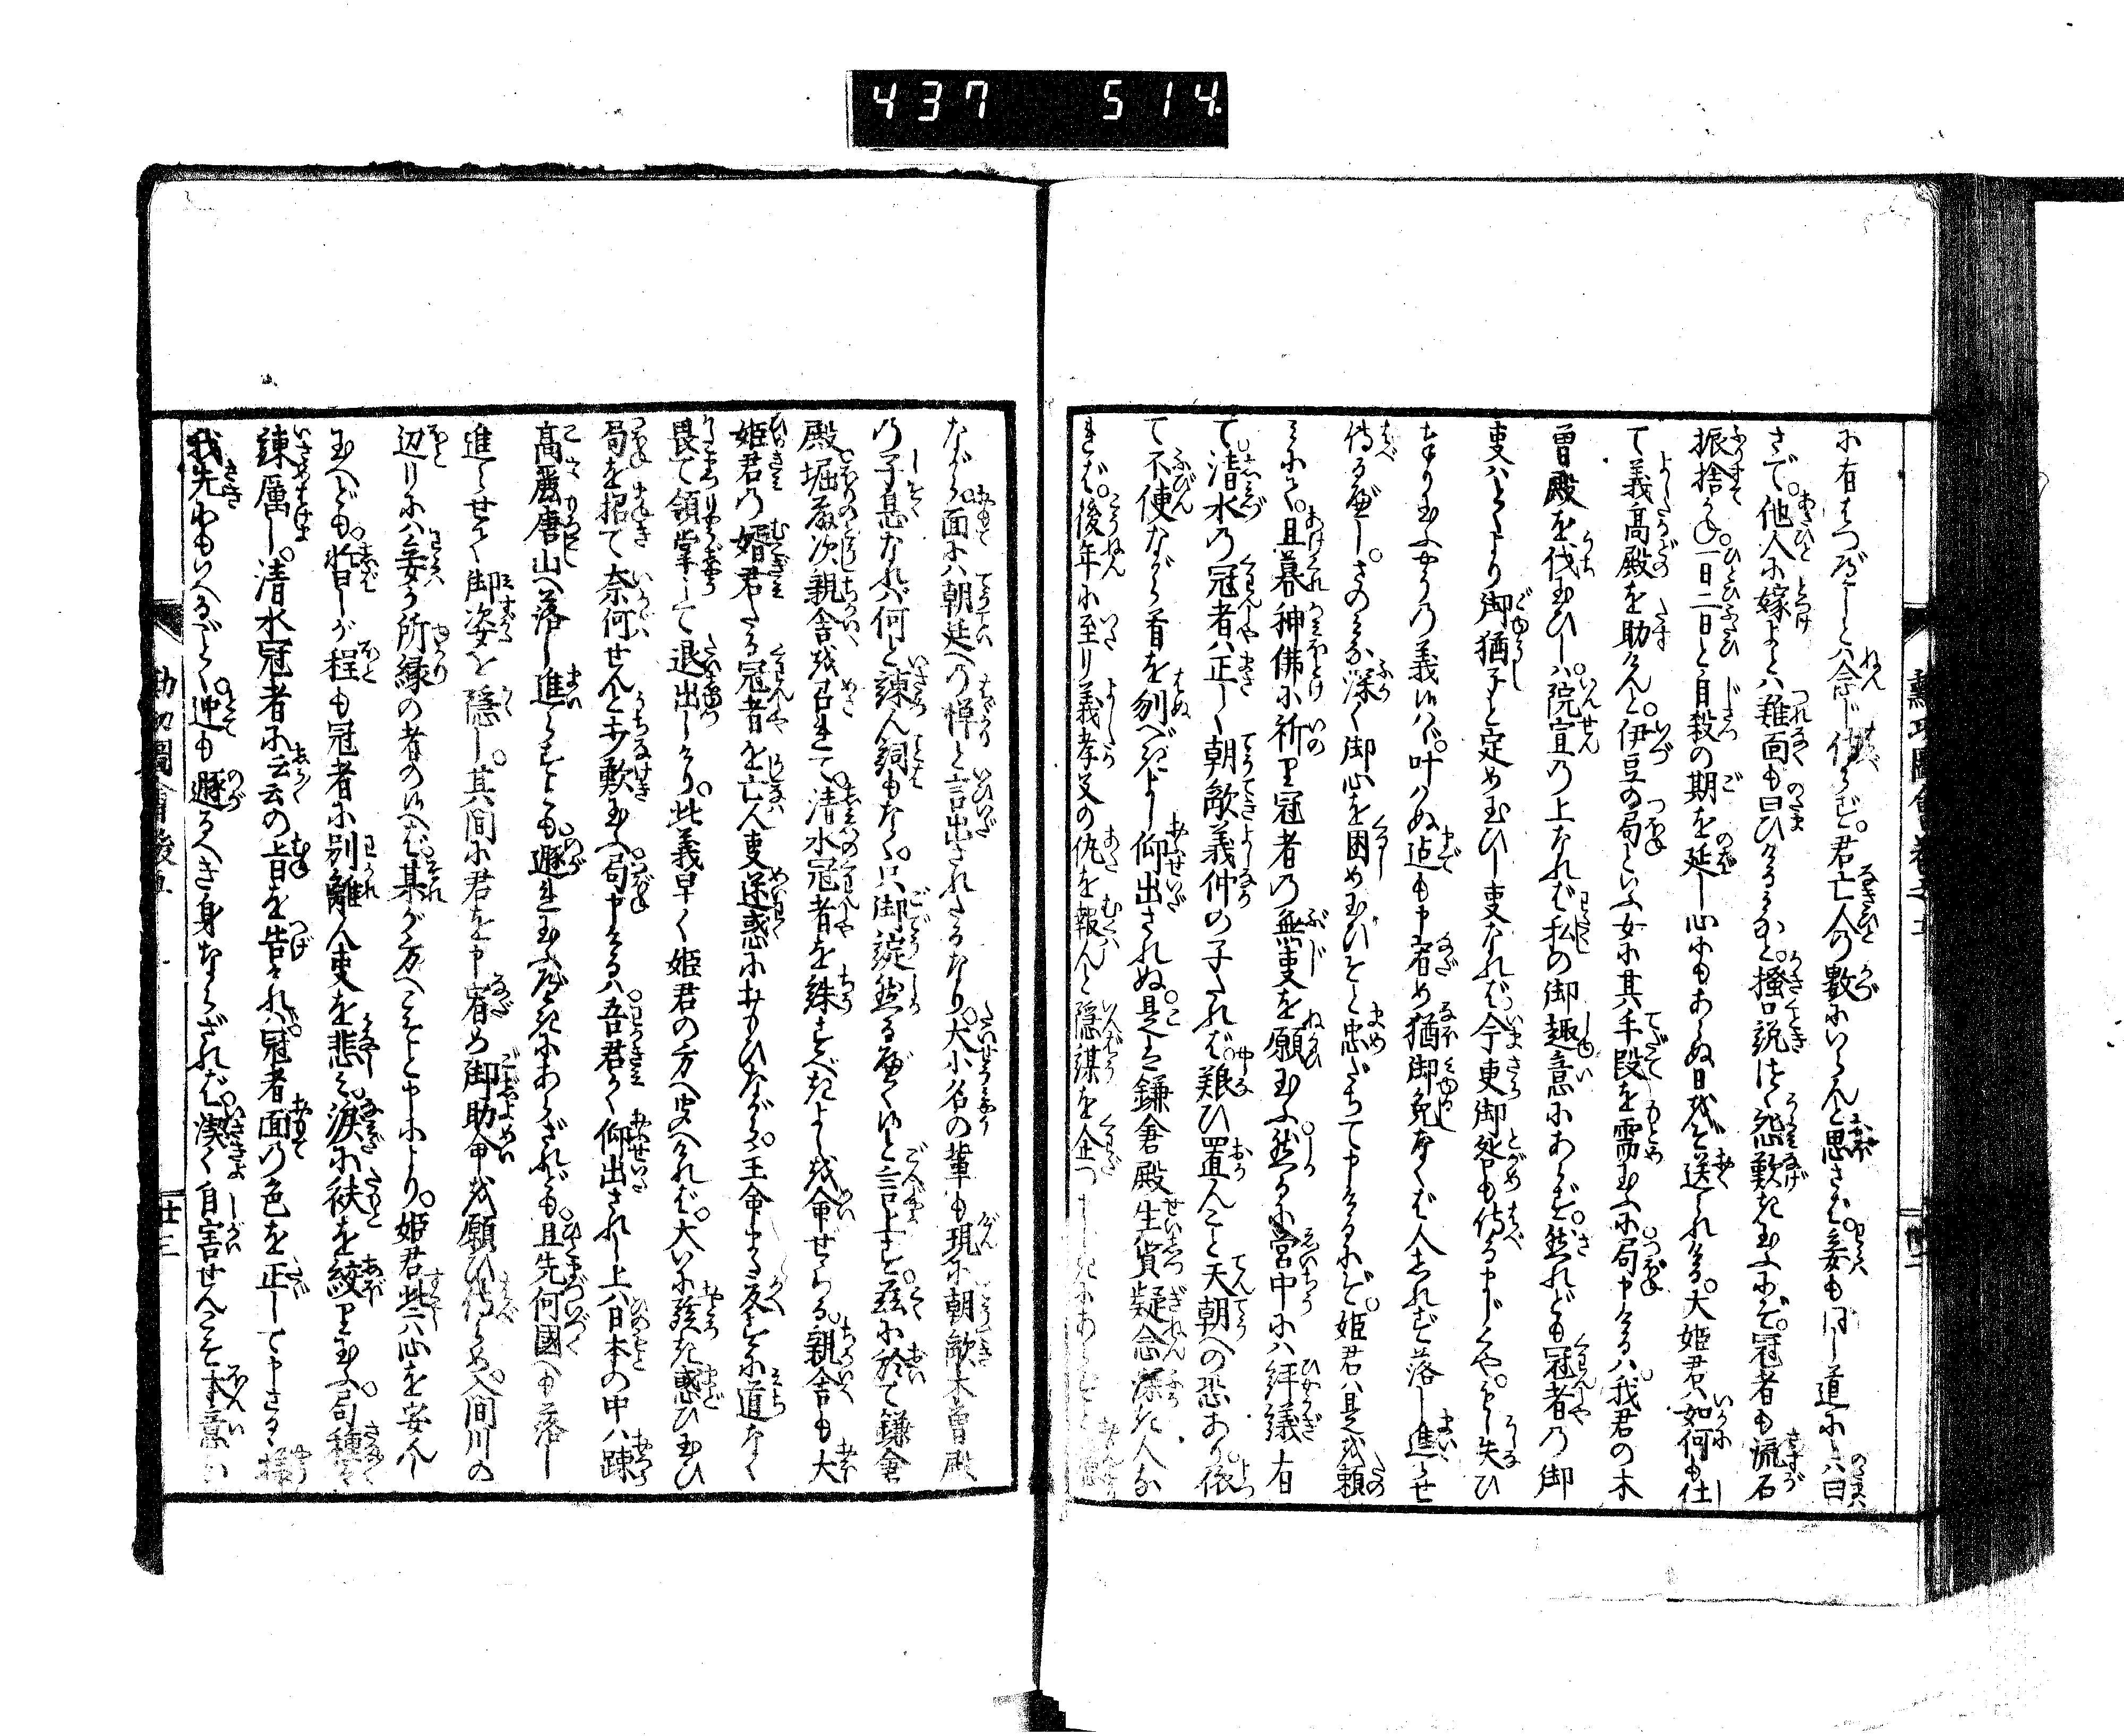 437 514
に有はつべしとは念じ侍らず。君亡人の數にいらんと思さば。妾も同じ道にとは曰
さで。他人に嫁よとは難面も曰ひけるかと。掻口説つゝ怨歎き玉ふにぞ。冠者も流石
振捨かね。一日二日と自殺の期を延し心にもあらぬ日をぞ送られける。大姫君は如何も仕
て義高殿を助けんと。伊豆の局といふ女に其手段を需玉ふに局申けるは。我君の木
曽殿を伐玉ひしは。院宣の上なれば私の御趣意にあらず。然れども冠者の御
事はとくより御猶子と定め玉ひし事なれば今更御咎も侍るまじくや。もし失ひ
奉り玉ふやうの義候はゞ。叶はぬ迠も申宥め猶御免なくば人しれず落し進らせ
侍るべし。さのみな深く御心を困め玉ひそと忠だちて申けるにぞ。姫君は是を頼
みにて。旦暮神佛に祈り冠者の無事を願玉ふ。然るに宮中には評議有
て。清水の冠者は正しく朝敵義仲の子たれば。艱ひ置んこと天朝への恐あり。依
て不便ながら首を刎べきよし仰出されぬ。是は鎌倉殿生質疑念深き人な
れば。後年に至り義孝父の仇を報んと隠謀を企つ
ながら。面には朝廷への憚と言出されたるなり。大小名の輩も現に朝敵木曽殿
の子息なれば何と諫ん詞もなく。只御諚然るべく候と言上す。茲に於て鎌倉
殿堀藤次親舎を召れて。清水冠者を誅すべきよしを命ぜらる。親舎も大
姫君の婿君たる冠者を亡ん事迷惑におもひながら。王命申も反すに道なく
畏て領掌して退出しけり。此義早く姫君の方へ聞へければ。大いに駭き惑ひ玉ひ
局を招て奈何せんと打歎玉ふ。局申けるは。吾君かく仰出されし上は日本の中は踈
高麗唐山へ落し進らすとも遯れ玉ふべきにあらざれども。且先何國へも落し
進らせて御姿を隠し。其間に君を申宥め御助命を願ひ侍らめ。入間川の
辺りには妾が所縁の者の候へば某が方へこそと申により。姫君些は心を安んじ
玉へども。暫しが程も冠者に別離ん事を悲み涙に袂を絞り玉ふ。局種々
諫厲し。清水冠者に云云の旨を告ければ。冠者面の色を正して申さるゝ様
我先にもいへるごとく。迚も遯るべき身ならざれば。潔く自害せんこそ本意